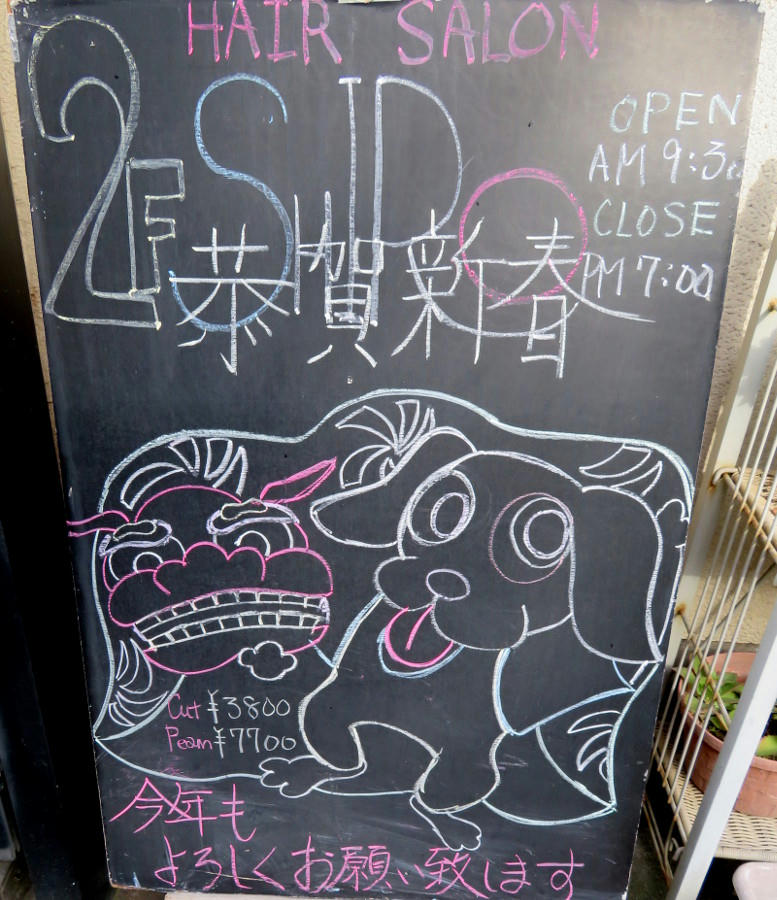 HAIR SALON
2F SiPe
OPEN
AM 9:30
CLOSE
PM 7:00
恭賀新春
Cut ¥3800
Peam ¥7700
今年も
よろしくお願い致します